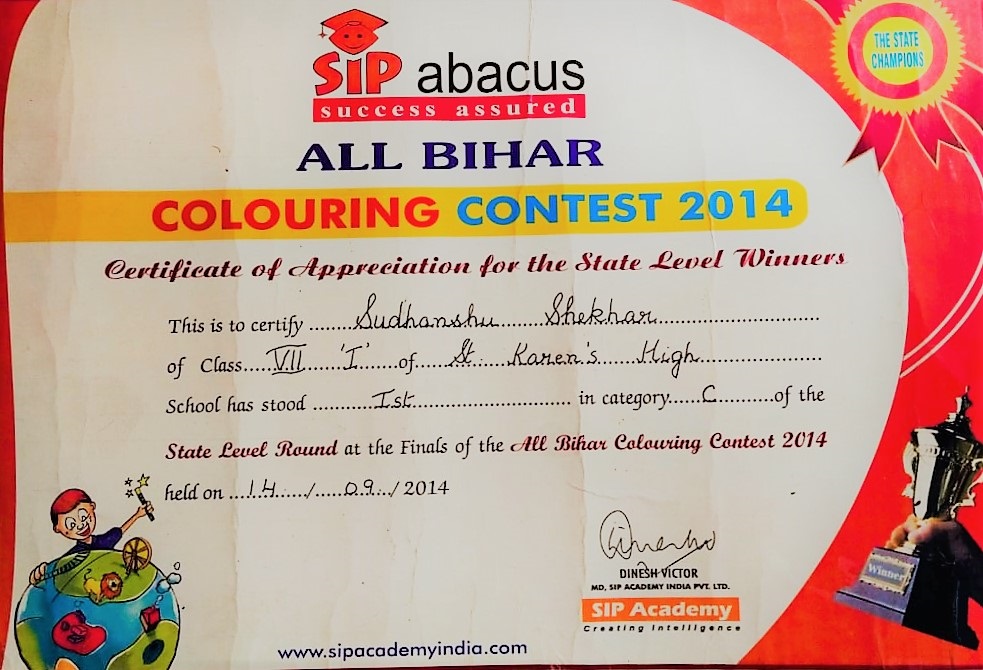 SIP abacus
success assured
THE STATE
CHAMPIONS
ALL BIHAR
COLOURING CONTEST 2014
Certificate of Appreciation for the State Level Winners
This is to certify ........Sudhanshu.......Shekhar................................
of Class.....VII......'I'......of......St. Karen's.....High......................
School has stood ............Ist............................... in category......C..........of the
State Level Round at the Finals of the All Bihar Colouring Contest 2014
held on ...14....../......09.../ 2014
Dinesh
DINESH VICTOR
MD, SIP ACADEMY INDIA PVT. LTD.
SIP Academy
Creating Intelligence
Winner
www.sipacademyindia.com